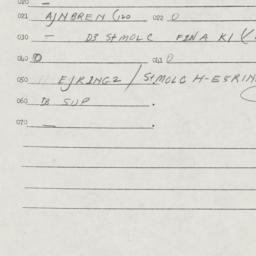 020 —
021 AJNBREN G120 022 0
030 — D3 StMOLC FINA KI
040 0 041 0
050 EJRINGZ / StMOLC H-ESRIN
060 IR SUP .
070 — .